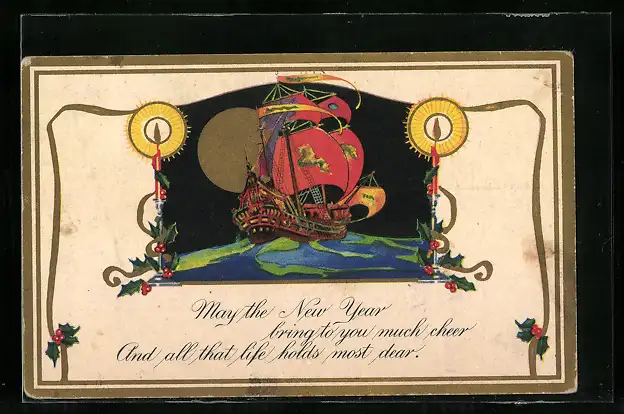 May the New Year
bring to you much cheer
And all that life holds most dear.